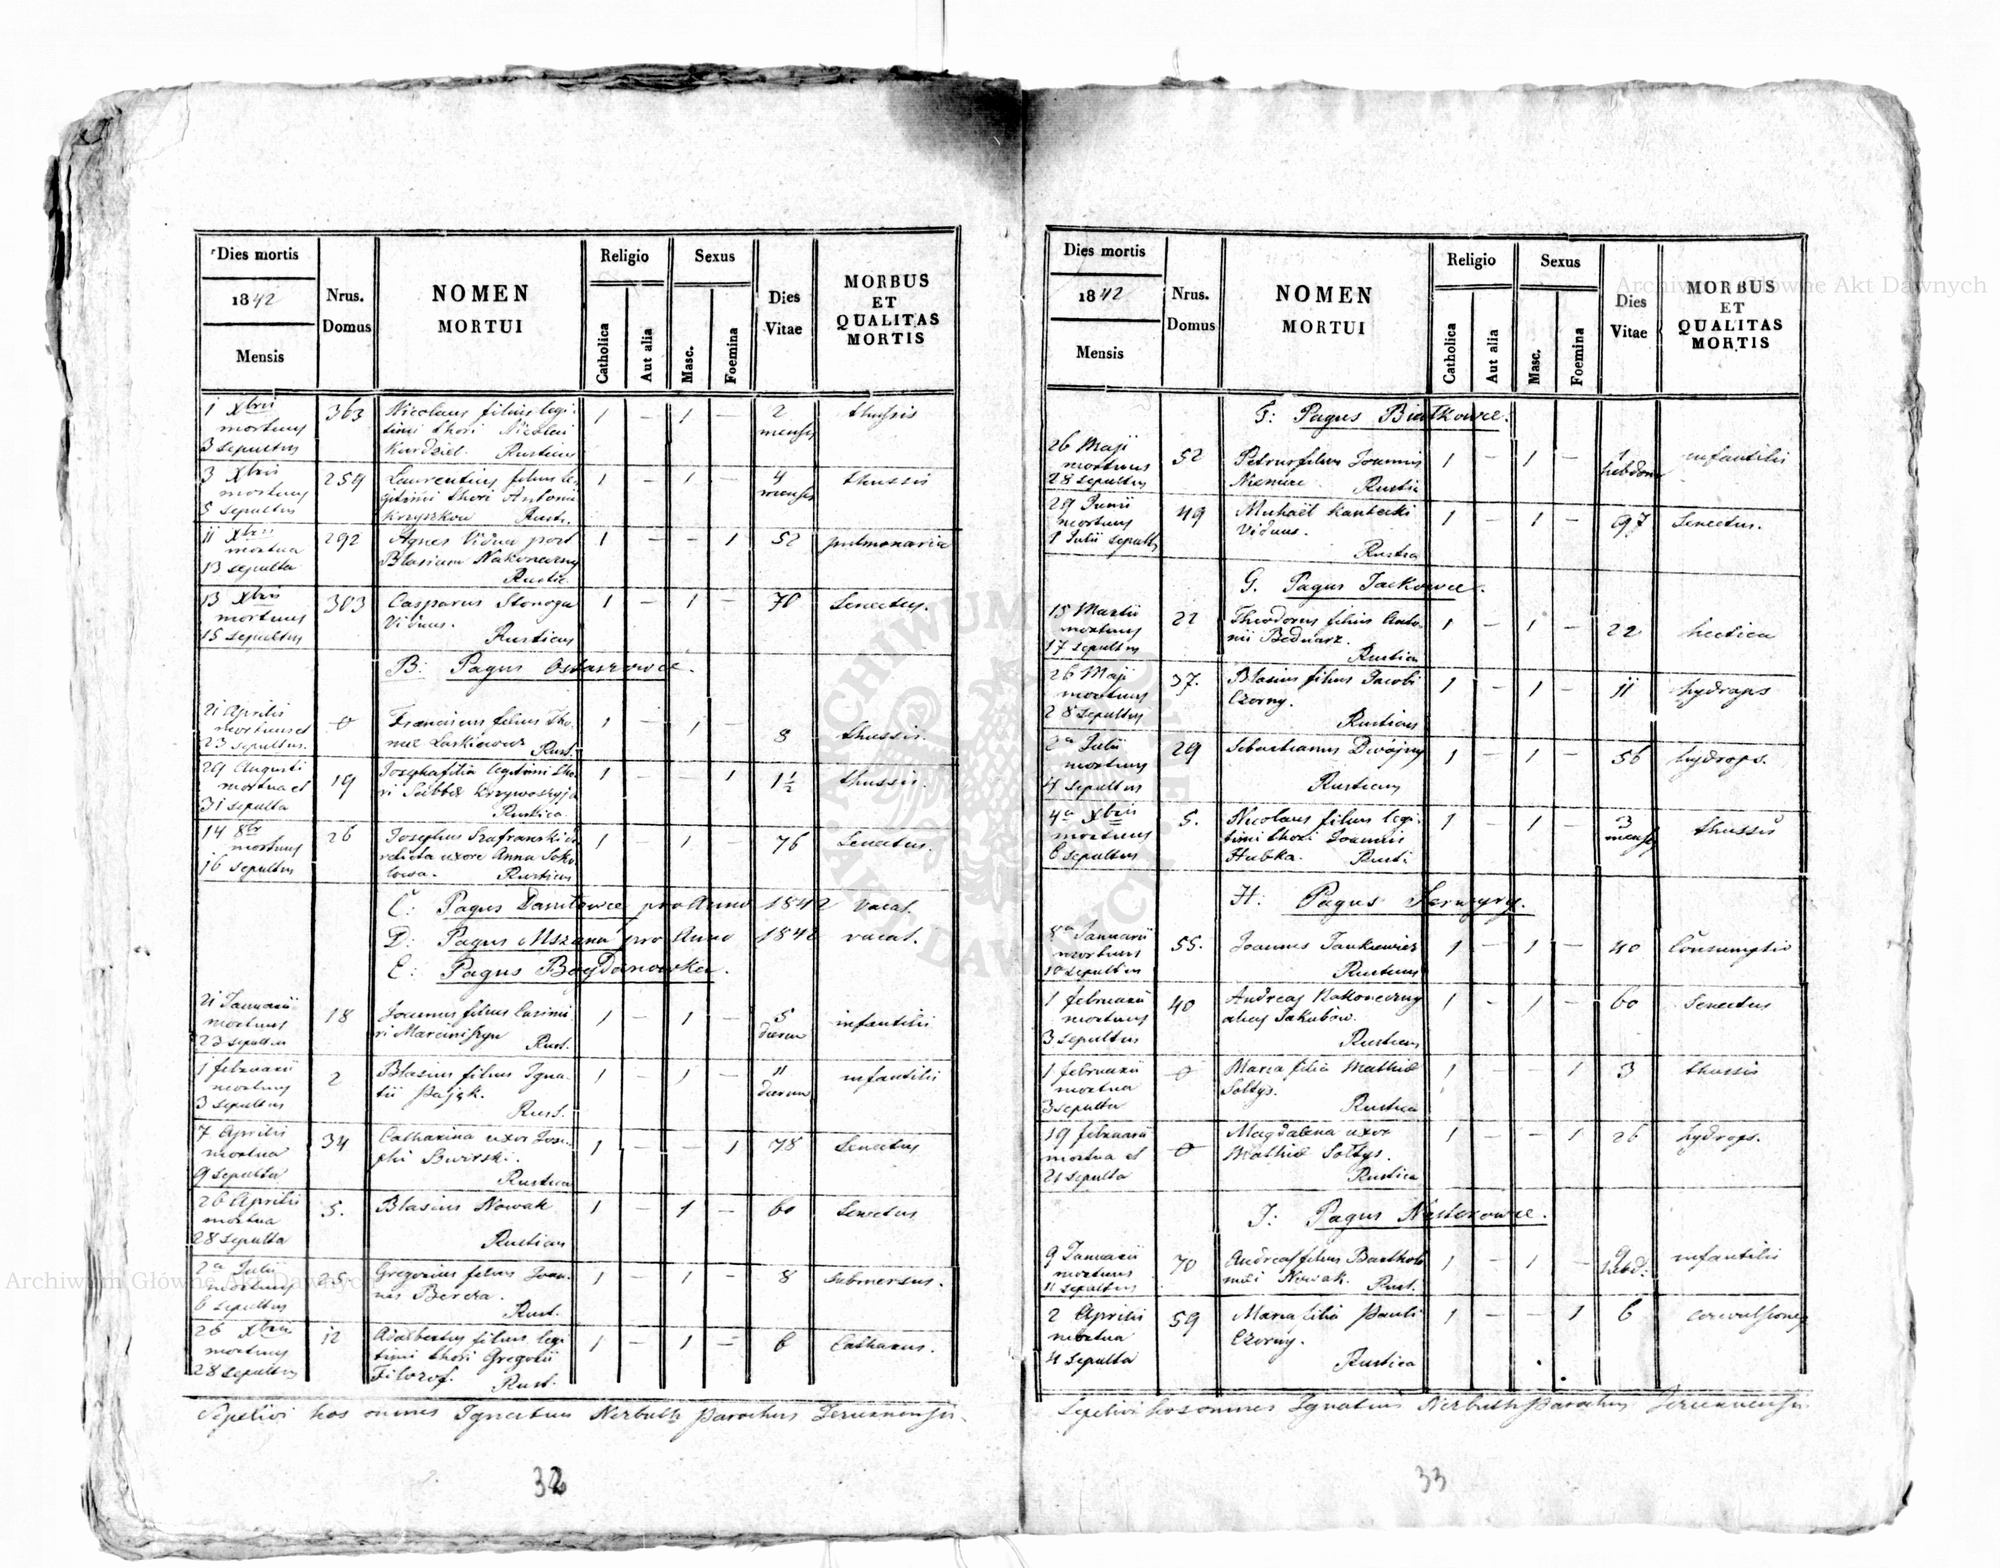 Dies mortis
1842
Mensis
Nrus. Domus
NOMEN MORTUI
Religio
Catholica
Aut alia
Sexus
Masc.
Foemina
Dies Vitae
MORBUS ET QUALITAS MORTIS
1 Xbris 363 Nicolaus filius legi- 1 – 1 – 2 thussis
mortuus timi thori Nicolai menses
3 sepultus Kurdziel. Rusticus
3 Xbris 259 Laurentius filius le- 1 – 1 – 4 thussis
mortuus gitimi thori Antonii menses
5 sepultus Krzyszkow Rust.
11 Xbris 292 Agnes Vidua post 1 – – 1 52 pulmonaria
mortua Blasium Nakoneczny
13 sepulta Rustic
13 Xbris 303 Casparus Stonoga 1 – 1 – 70 Senectus.
mortuus Viduus.
15 sepultus Rusticus
B: Pagus Ostaszowce.
21 Aprilis 0 Franciscus filius Tho- 1 – 1 – 8 thussis.
mortuus et mae Laskiewicz Rust.
23 sepultus.
29 Augusti 19 Josepha filia legitimi tho- 1 – 1 1½ thussis.
mortua et ri Sabbae Krzywoszyja
31 sepulta Rustica
14 8br 26 Josephus Szafranski 1 1 – 76 Senectus.
mortuus relicta uxore Anna Soko-
16 sepultus lowa. Rusticus
C: Pagus Daniłowce pro Anno 1842 vacat.
D: Pagus Mszana pro Anno 1842 vacat.
E: Pagus Bogdanowka.
21 Januarii 18 Joannes filius Casimi- 1 – 1 – 5 infantilis
mortuus ri Marciniszyn Rust. dierum
23 sepultus
1 februarii 2 Blasius filius Igna- 1 – 1 – 11 infantilis
mortuus tii Pająk. dierum
3 sepultus Rust.
7 Aprilis 34 Catharina uxor Jose- 1 – – 1 78 Senectus
mortua phi
9 sepulta Rustica
26 Aprilis 5. Blasius Nowak 1 – 1 – 60 Senectus
mortua
28 sepulta Rusticus
2a Julii 25 Gregorius filius Joan- 1 – 1 – 8 submersus.
mortuus nis Bereza.
6 sepultus Rust.
26 Xbris 12 Adalbertus filius legi- 1 – 1 – 6 Catharus.
mortuus timi thori Gregorii
28 sepultus Filozof. Rust.
Sepelivi hos omnes Ignatius Nerbuth Parochus Jeziernensis.
32
Dies mortis
1842
Mensis
Nrus. Domus
NOMEN MORTUI
Religio
Catholica
Aut alia
Sexus
Masc.
Foemina
Dies Vitae
MORBUS ET QUALITAS MORTIS
F: Pagus Białkowce.
26 Maji 52 Petrus filius Joannis 1 – 1 – 1 infantilis
mortuus Rustic hebdom
28 sepultus
29 Junii 49 Michaël Kantecki 1 – 1 – 97 Senectus.
mortuus Viduus.
1 Julii sepult Rustica
G. Pagus Jackowce.
15 Martii 22 Theodorus filius Anto- 1 – 1 – 22 hectica
mortuus nii Bednarz.
17 sepultus Rusticus
26 Maji 37. Blasius filius Jacobi 1 – 1 – 11 hydrops
mortuus Czorny.
28 sepultus Rusticus
2a Julii 29 Sebastianus 1 – 1 – 56 hydrops.
mortuus
4 sepultus Rusticus
4a Xbris 5. Nicolaus filius legi- 1 – 1 – 3 thussis
mortuus timi thori Joannis menses
6 sepultus Hubka. Rusti
H: Pagus Serwyry.
8a Januarii 55. Joannes Jankiewicz 1 – 1 – 40 Consumptio
mortuus
10 sepultus Rusticus
1 februarii 40 Andreas Nakoneczny 1 – 1 – 60 Senectus
mortuus alias Jakubow.
3 sepultus Rusticus
1 februarii 0 Maria filia Mathiae 1 – – 1 3 thussis
mortua Soltys.
3 sepulta Rustica
19 februarii 0 Magdalena uxor 1 – – 1 26 hydrops.
mortua et Mathiae Soltys.
21 sepulta Rustica
J: Pagus Nesterowce.
9 Januarii 70 Andreas filius Bartholo- 1 – 1 – 9 infantilis
mortuus mei Nowak. Rust. hebd:
11 sepultus
2 Aprilis 59 Maria filia Pauli 1 – – 1 6 convulsiones
mortua Czorny.
4 sepulta Rustica
Sepelivi hos omnes Ignatius Nerbuth Parochus Jeziernensis.
33
Archiwum Główne Akt Dawnych
Archiwum Główne Akt Dawnych
ARCHIWUM GŁÓWNE AKT DAWNYCH